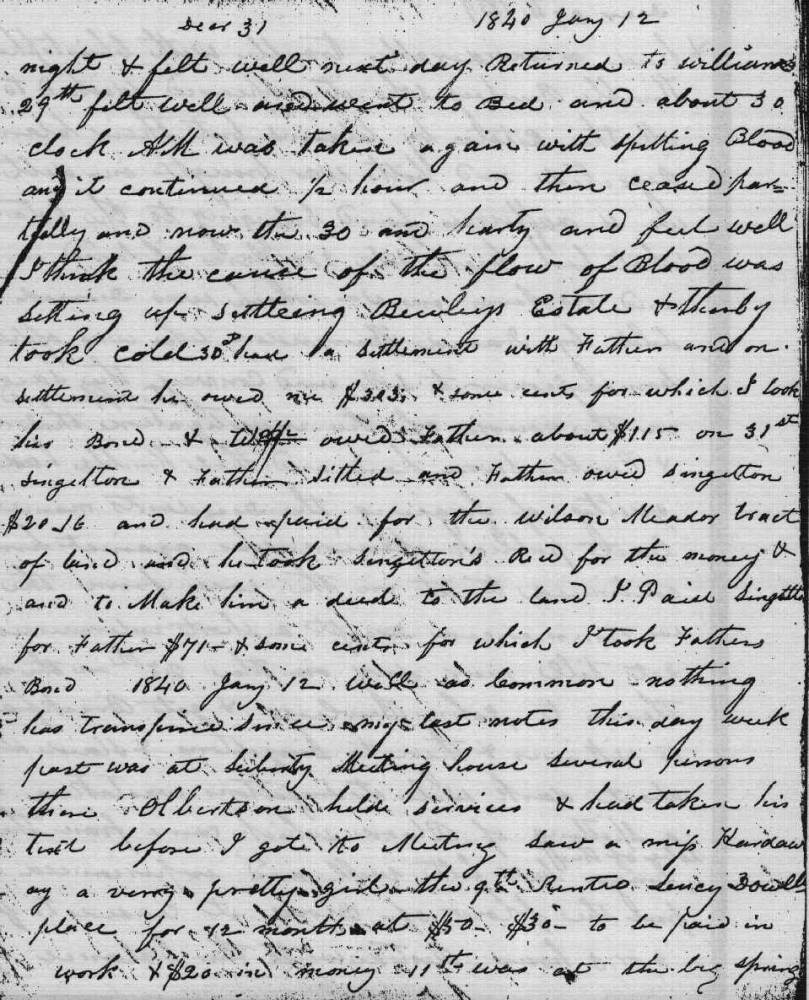 Decr 31 1840 Jany 12
night & felt well next day Returned to williams
29th felt well and went to Bed and about 3 o
clock AM was taken again with spitting Blood
and it continued ½ hour and then ceased par=
tially and now the 30 am harty and feel well
I think the cause of the flow of Blood was
setting up settleing Bewleys Estate & therby
took cold 30th had a settlement with Father and on
settlement he owed me & some cents for which I took
his Bond & owed Father about $115 on 31st
Singelton & Father sitled and Father owed Singelton
$20.16 and had paid for the Wilson Meador tract
of land and he took Singelton's Rec'd for the money &
and to Make him a deed to the land I Paid Singelto
for Father $71- & some cents for which I took Fathers
Bond 1840 Jany 12 well as Common nothing
has transpired since my last notes this day week
past was at Liberty Meeting house several persons
there Olbertson helde services & had taken his
text before I gote to Meeting saw a miss Hardaw
ay a verry pretty girl the 9th Rented Lucy Dowells
place for 12 months at $50- $30- to be paid in
work & $20 in money 11th was at the big spring